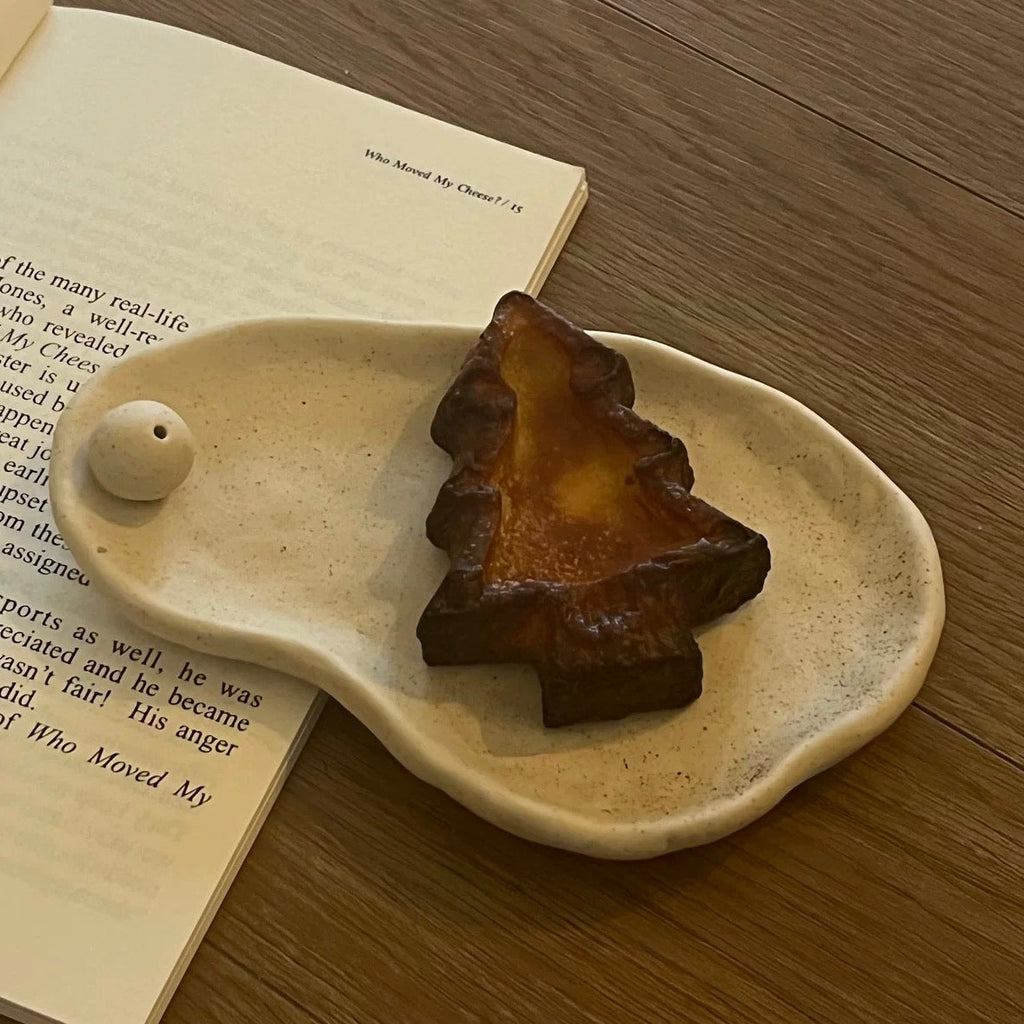 Who Moved My Cheese? / 15
of the many real-life
Jones, a well-
who revealed
My Chees
ster is u
used b
appen
eat jo
earli
upset
om the
assigned
sports as well, he was
reciated and he became
wasn't fair! His anger
did.
of Who Moved My